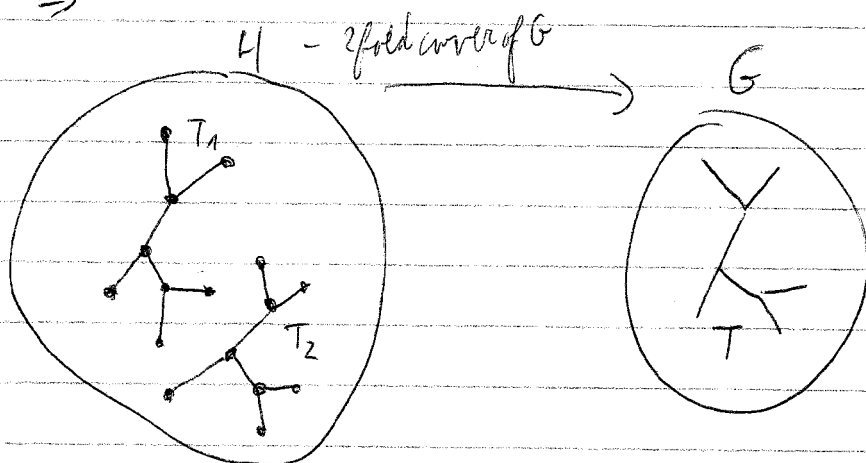 ⇒
H - 2fold cover of G
G
T₁
T₂
T